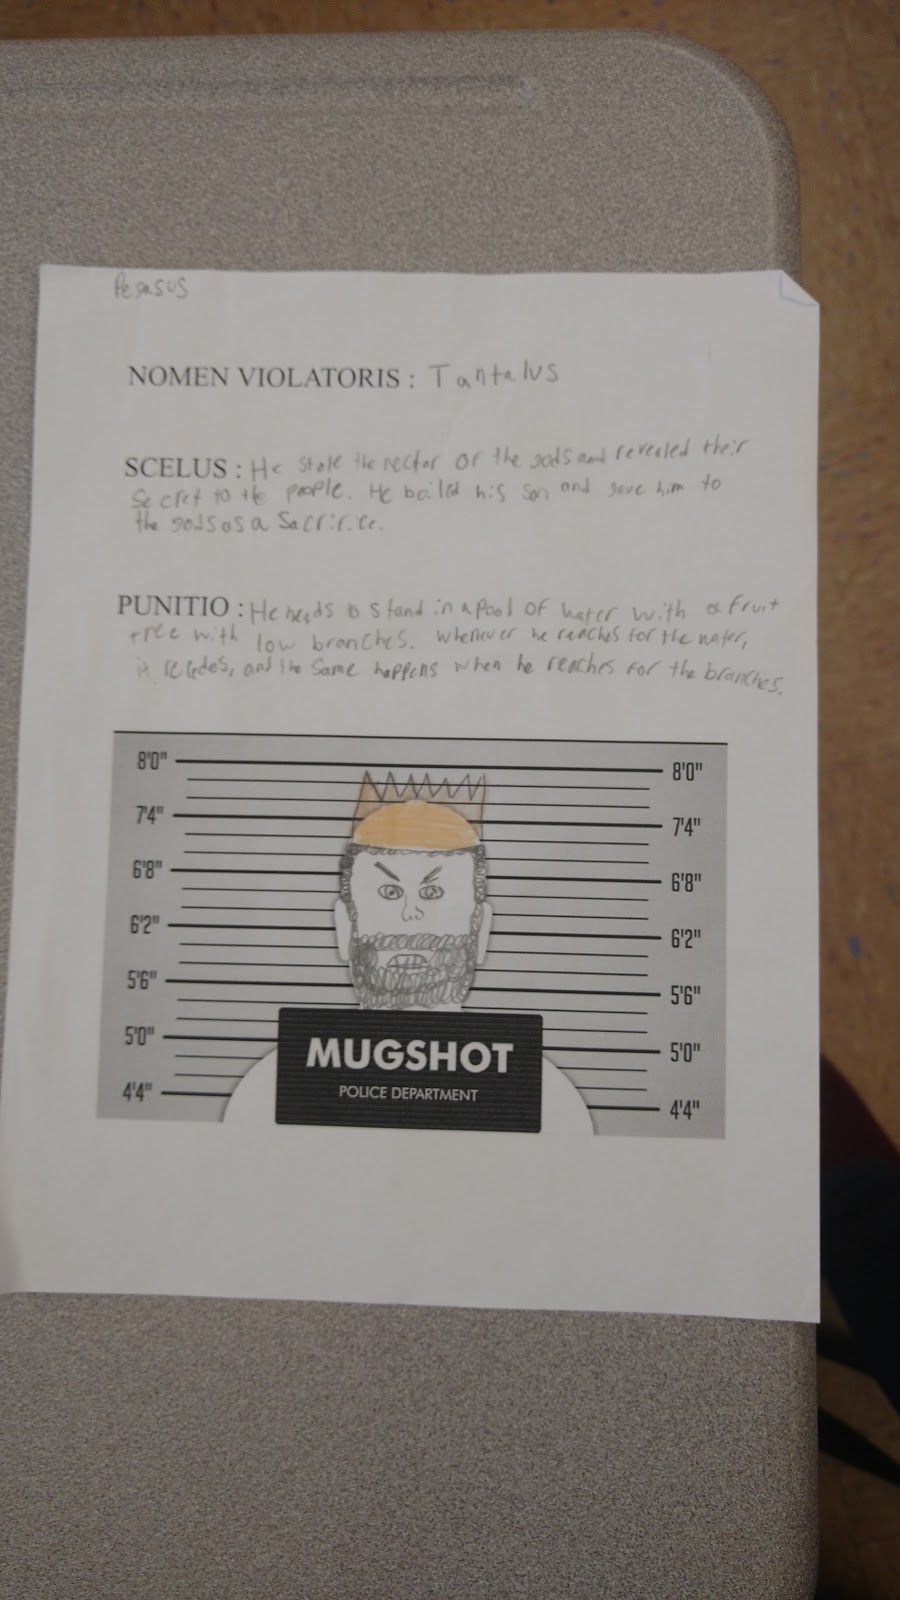 Pegasus
NOMEN VIOLATORIS : Tantalus
SCELUS : He stole the nectar of the gods and revealed their
secret to the people. He boiled his son and gave him to
the gods as a sacrifice.
PUNITIO : He needs to stand in a pool of water with a fruit
tree with low branches. Whenever he reaches for the water,
it recedes, and the same happens when he reaches for the branches.
8'0" 8'0"
7'4" 7'4"
6'8" 6'8"
6'2" 6'2"
5'6" 5'6"
5'0" 5'0"
4'4" 4'4"
MUGSHOT
POLICE DEPARTMENT